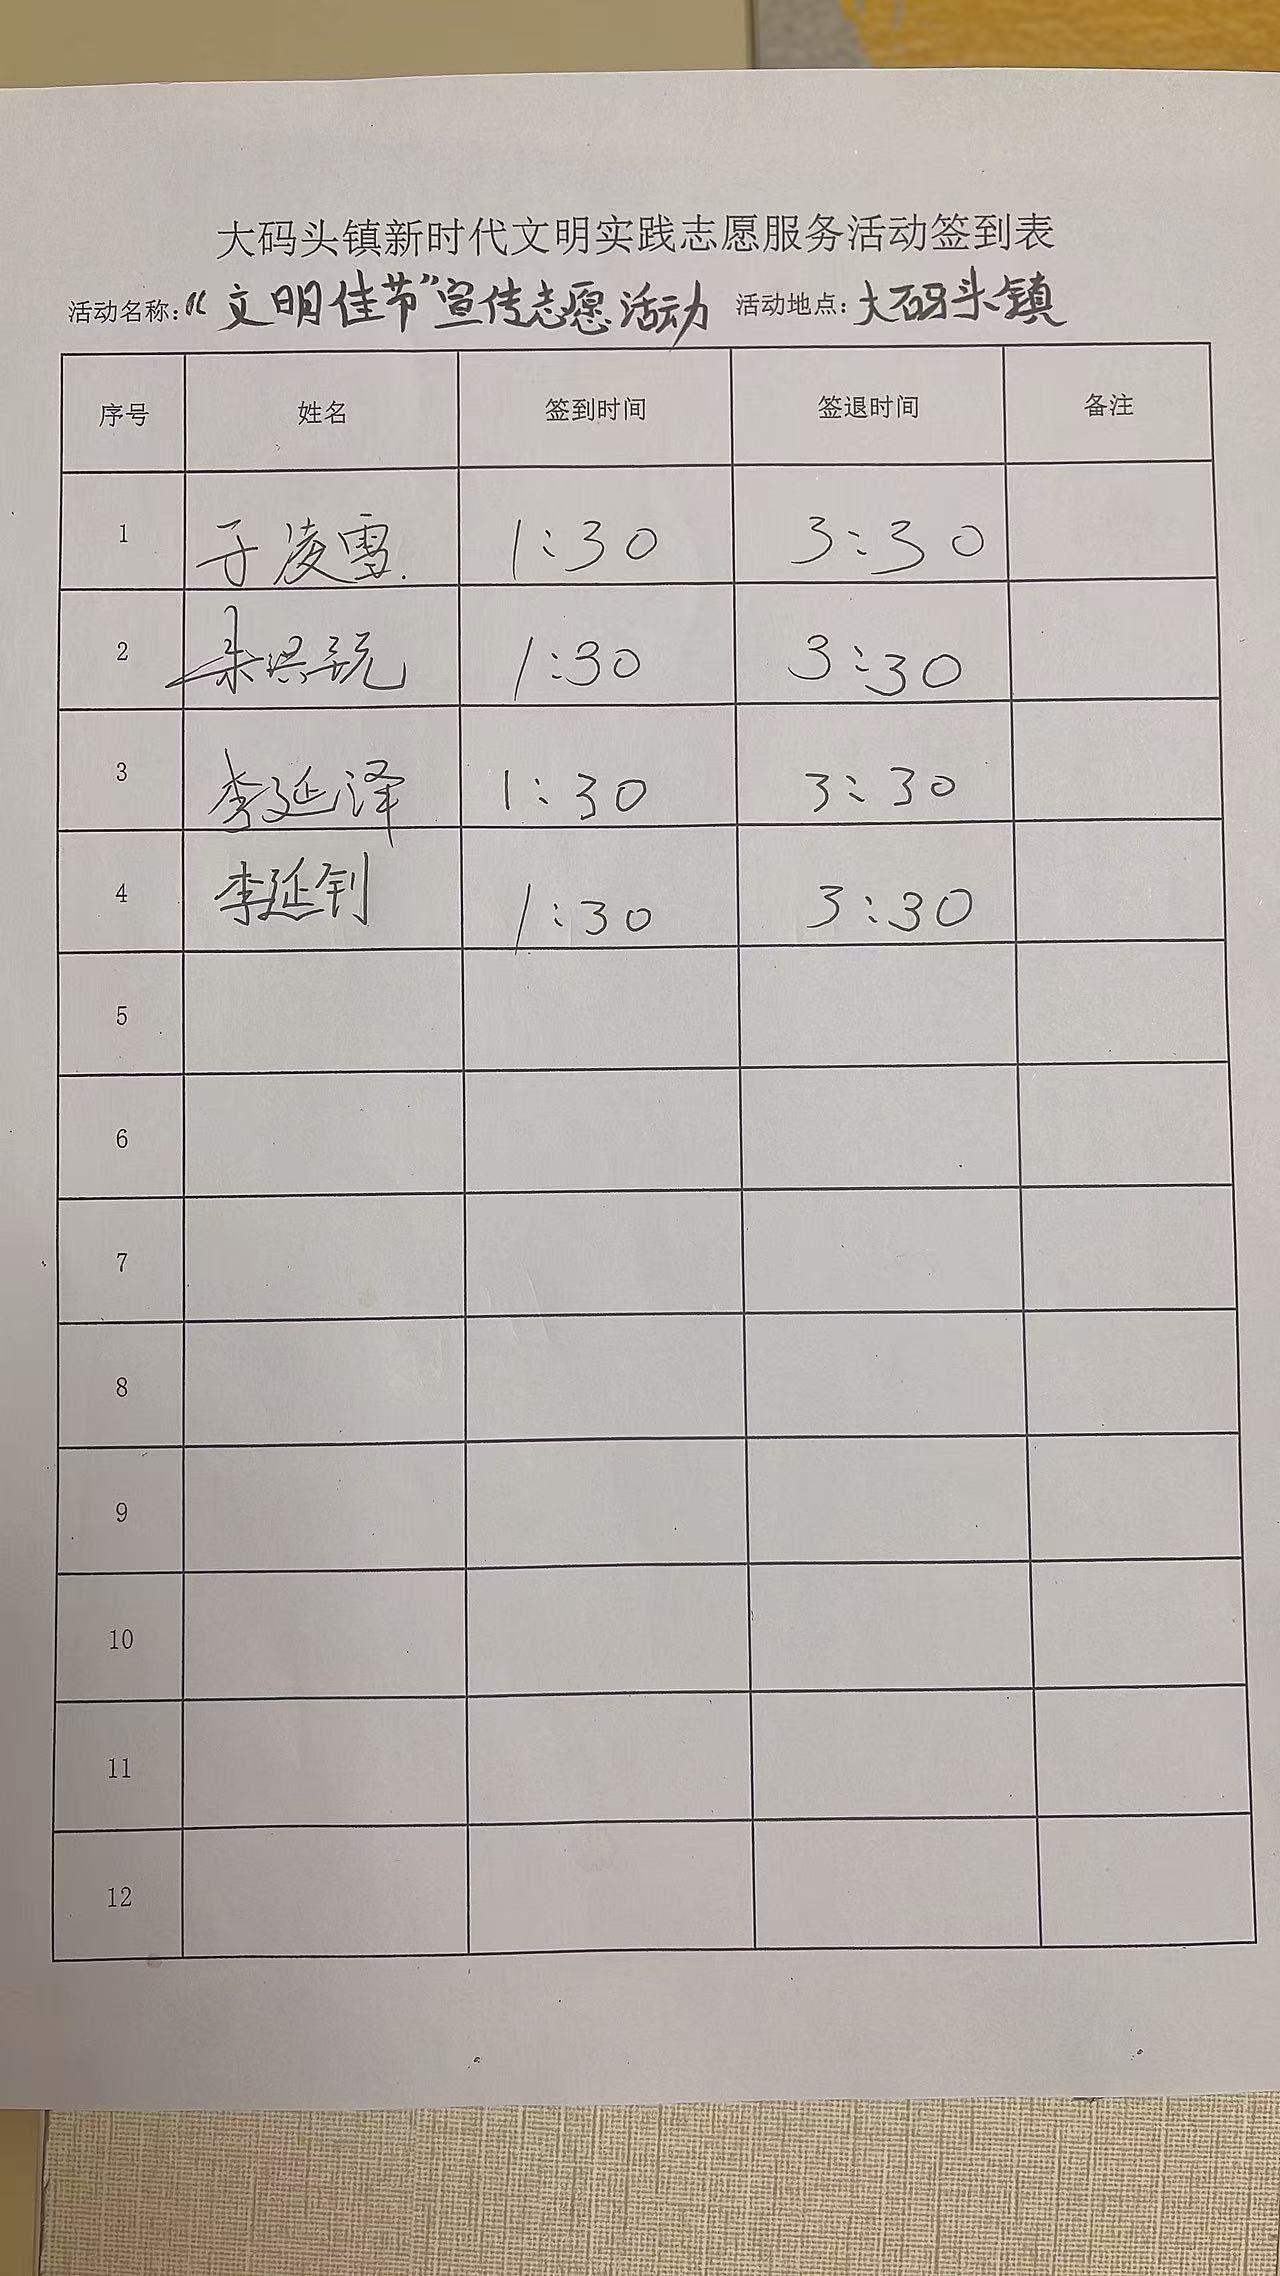 大码头镇新时代文明实践志愿服务活动签到表
活动名称:“文明佳节”宣传志愿活动 活动地点:大码头镇
序号 姓名 签到时间 签退时间 备注
1 于凌雪 1:30 3:30
2 1:30 3:30
3 李延泽 1:30 3:30
4 李延钊 1:30 3:30
5
6
7
8
9
10
11
12